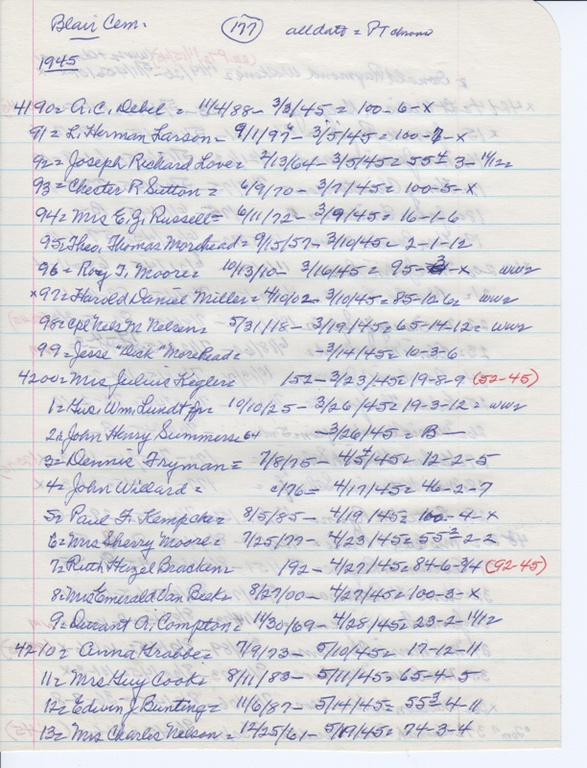 Blair Cem. (177) all data = PT chrono
1945
4190= A.C. Debel = 11/4/88- 3/3/45= 100-6-X
91= L. Herman Larson= 9/1/97- 3/5/45= 100-7-X
92= Joseph Richard Love= 2/13/64- 3/5/45= 55 3- 11/12
93= Chester R Sutton= 6/9/70- 3/7/45= 100-5-X
94= Mrs E.G. Russell= 6/11/72- 3/9/45= 16-1-6
95= Theo. Thomas Morehead= 9/15/57- 3/10/45= 2-1-12
96= Roy T. Moore= 10/13/10- 3/16/45= 95-3-X ww2
x97= Harold Daniel Miller= 4/10/02- 3/10/45= 85-12-6= ww2
98= Cpl Nels M Nelsen= 5/31/18- 3/19/45= 65-14-12= ww2
99= Jesse "Dick" Morehead= -3/14/45= 10-3-6
4200= Mrs Julius Kegler= 152- 3/23/45= 19-8-9 (52-45)
1= Gus Wm. Lundt Jr= 10/10/25- 3/26/45= 19-3-12= ww2
2= John Henry Summers= 64 -3/26/45= B-
3= Dennis Fryman= 7/8/75- 4/5/45= 12-2-5
4= John Willard= 2/76= 4/17/45= 46-2-7
5= Paul H. Kempcke= 8/5/85- 4/19/45= 100-4-X
6= Mrs Sherry Moore= 7/25/77- 4/23/45= 55 2-2
7= Ruth Hazel Bracken= 192- 4/27/45= 84-6-3/4 (92-45)
8= Mrs Emerald Van Beek= 8/27/00- 4/27/45= 100-3-X
9= Durant A. Compton= 11/30/69- 4/28/45= 23-2-11/12
4210= Anna Krabbe= 7/9/73- 5/10/45= 17-12-11
11= Mrs Guy Cook= 8/11/83- 5/11/45= 65-4-5
12= Edwin J Bunting= 11/6/87- 5/14/45= 55 3 4-11
13= Mrs Charles Nelson= 12/25/61- 5/19/45= 74-3-4